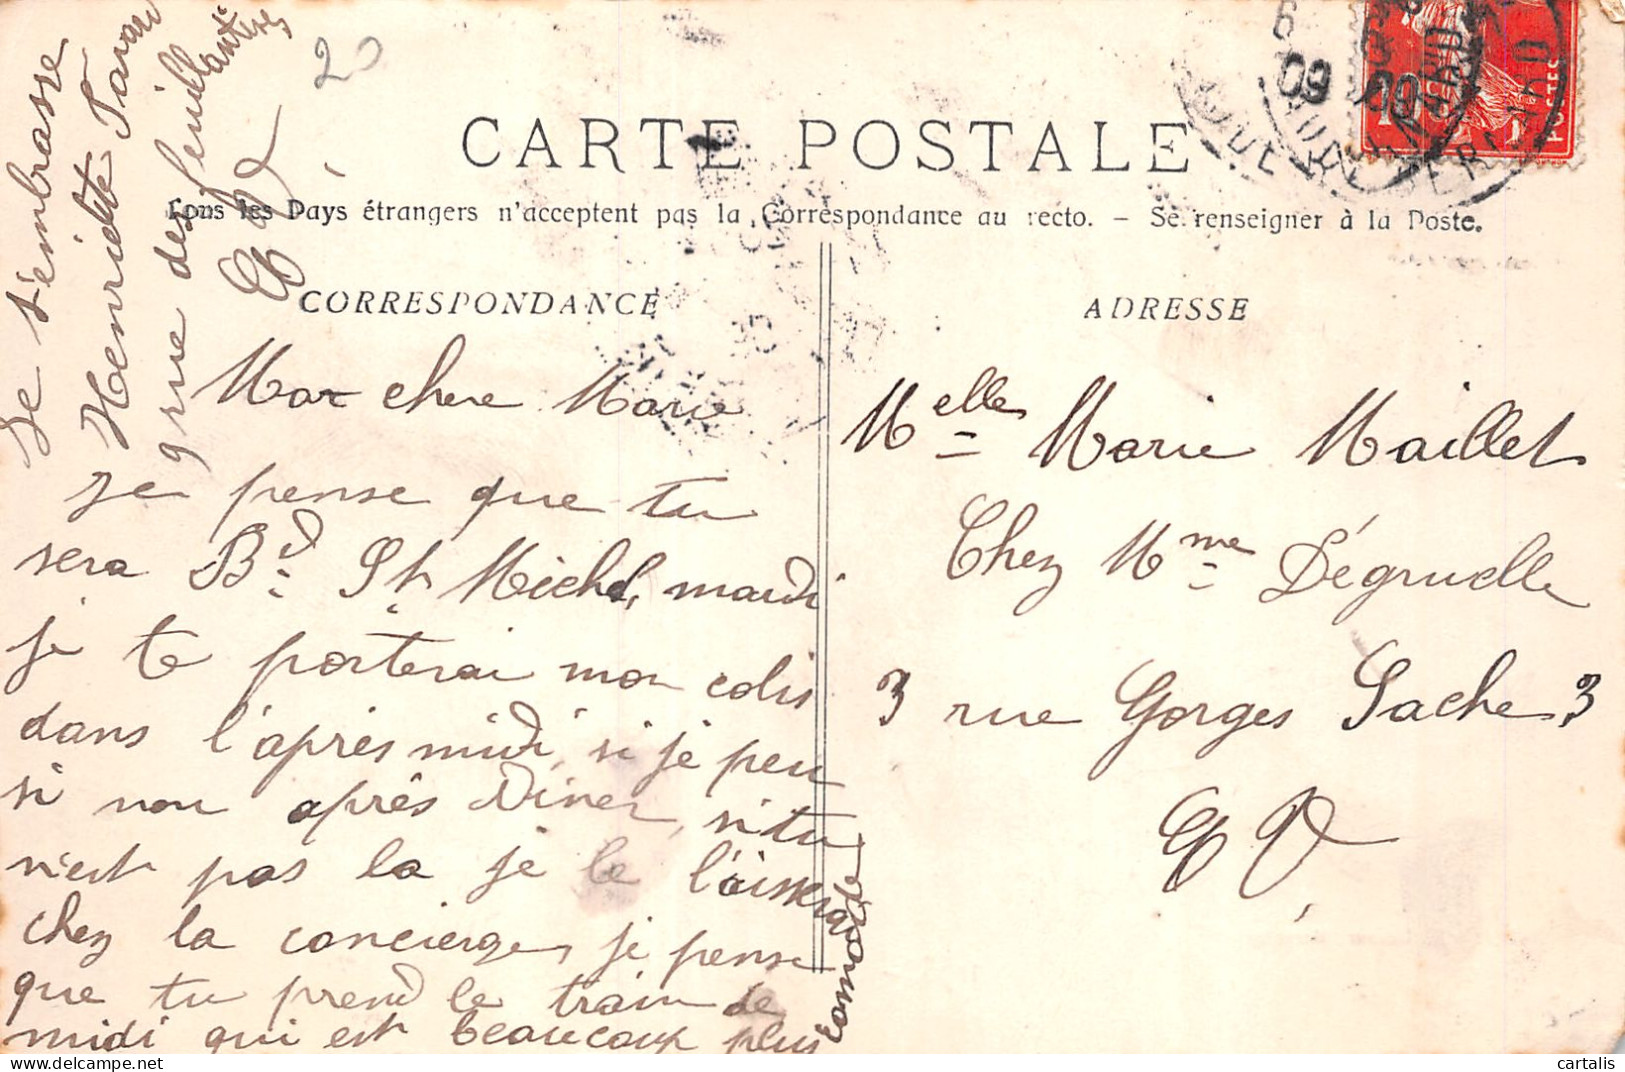 20
CARTE POSTALE
Tous les Pays étrangers n'acceptent pas la Correspondance au recto. – Se renseigner à la Poste.
CORRESPONDANCE
Mar chere Marie
je pense que tu
sera Bd St Michel, mardi
je te porterai mon colis
dans l'après midi, si je peu
si non après Diner, si tu
n'est pas la je le l'aisserai
chez la concierge, je pense
que tu prend le train de
midi qui est beaucoup plus
commode
Je t'embrasse
Henriette
9 rue des feuillantines
E V
ADRESSE
Melle Marie Maillet
Chez Mme Dégruelle
3 rue Gorges Sache 3
E V
09
10
POSTES
cartalis